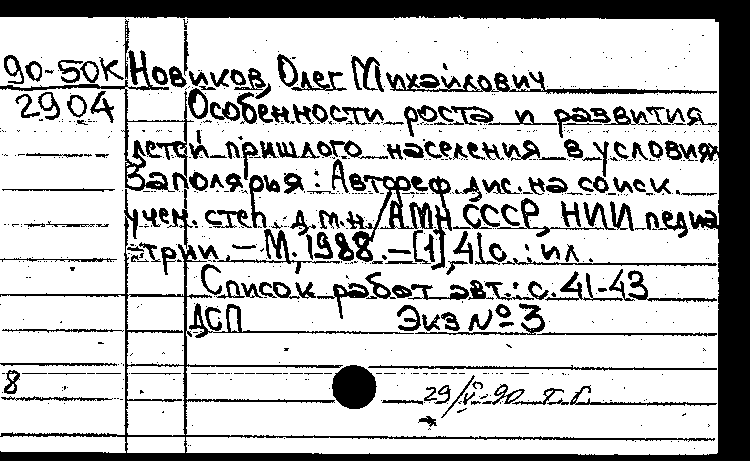 90-50К Новиков, Олег Михайлович
2904 Особенности роста и развития
детей пришлого населения в условиях
Заполярья: Автореф. дис. на соиск.
учен. степ. д.м.н. / АМН СССР, НИИ педиа
-трии. – М., 1988. – [1], 41 с. : ил.
Список работ авт.: с. 41-43
ДСП Экз №3
8
29/V-90 т.г.